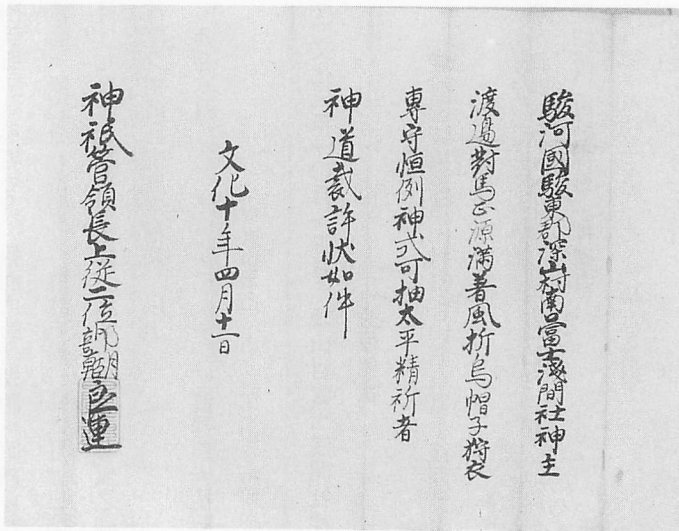 駿河國駿東郡深山村南口冨士淺間社神主
渡邉對馬正源満着風折烏帽子狩衣
專守恒例神式可抽太平精祈者
神道裁許狀如件
文化十年四月十一日
神祇管領長上従二位卜部朝臣良連